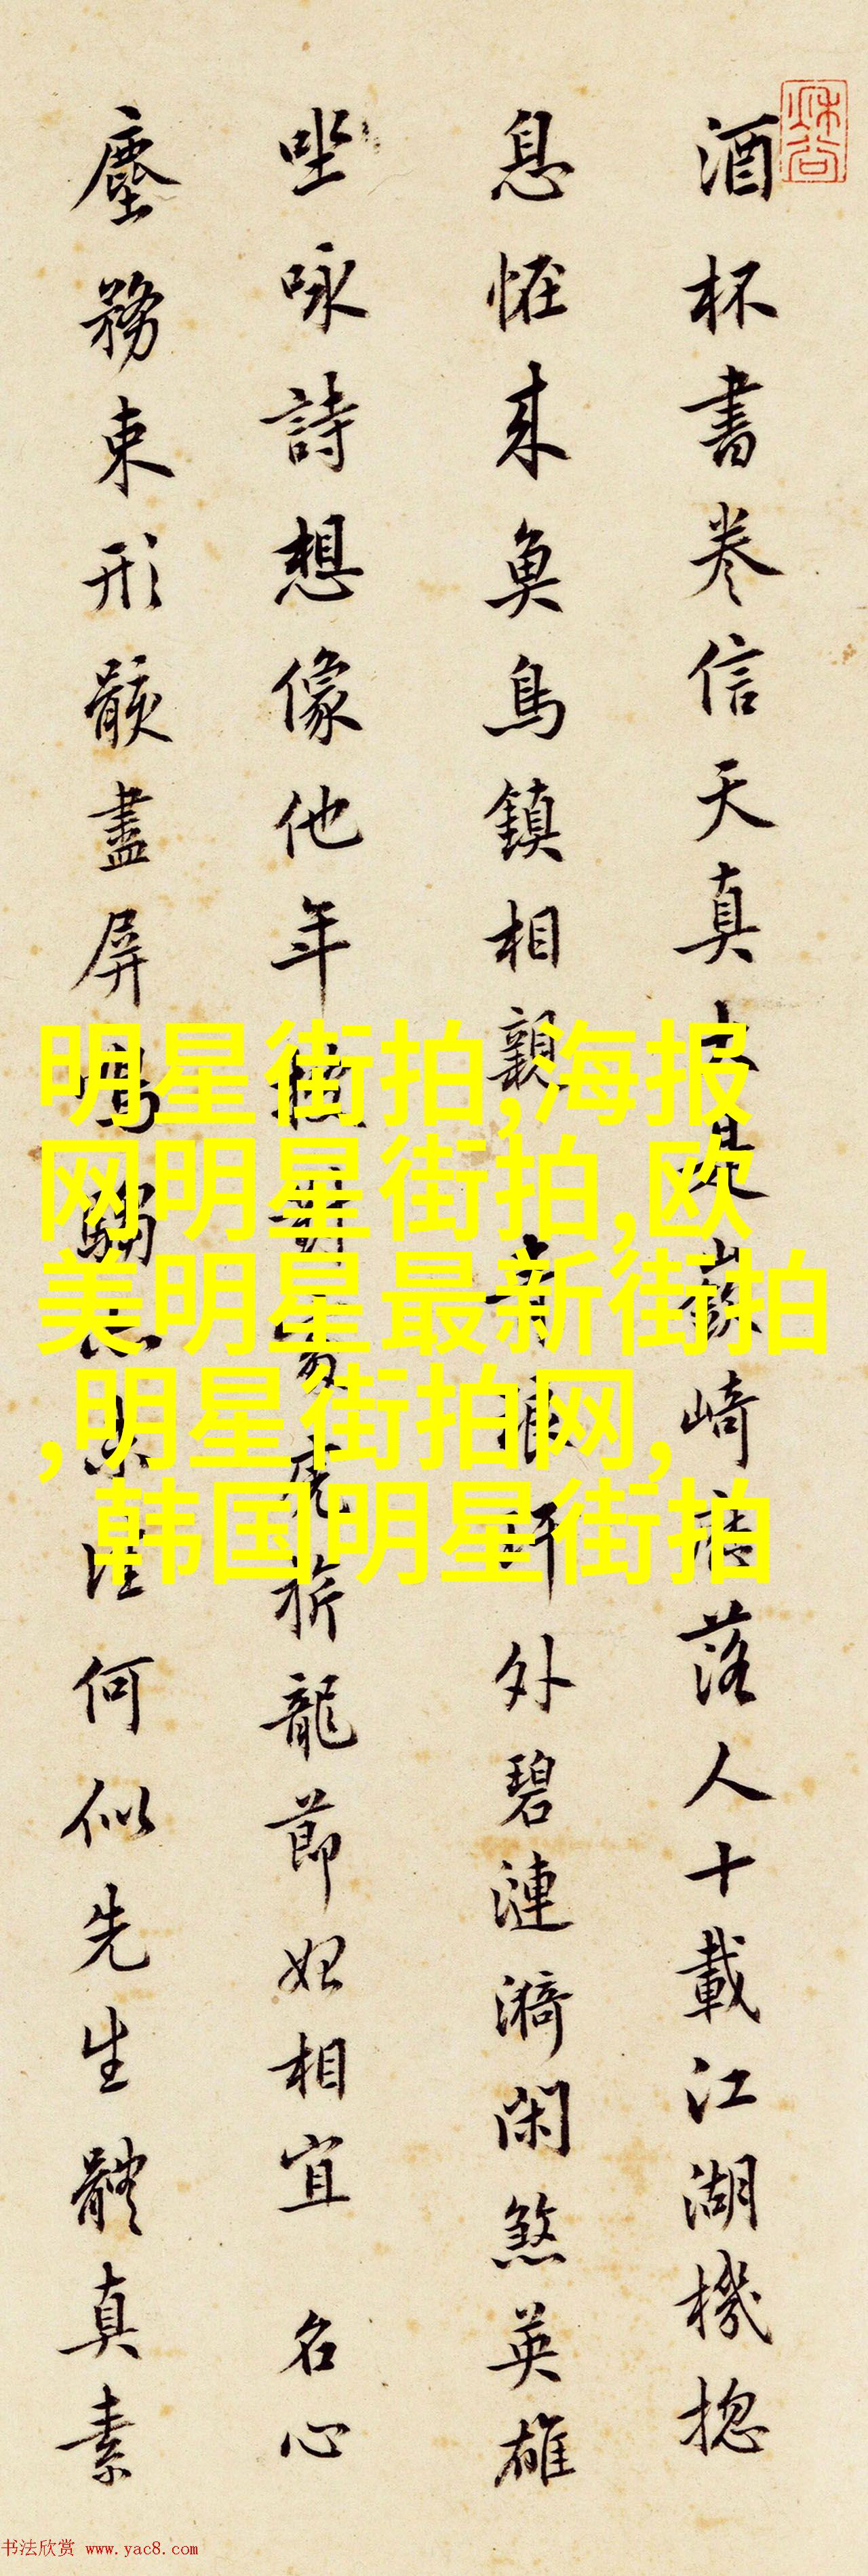 酒杯書卷信天真大是嶔崎落人十載江湖機揔
息恠来魚鳥鎮相親 浪軒外碧漣漪閑煞英雄
坐咏詩想像他年對虎旂龍節相宜 名心
塵務束形骸盡屏鳴騶何似先生體真素
明星街拍,海报
网明星街拍,欧
美明星最新街拍
,明星街拍网,
韩国明星街拍
书法欣赏 www.yac8.com